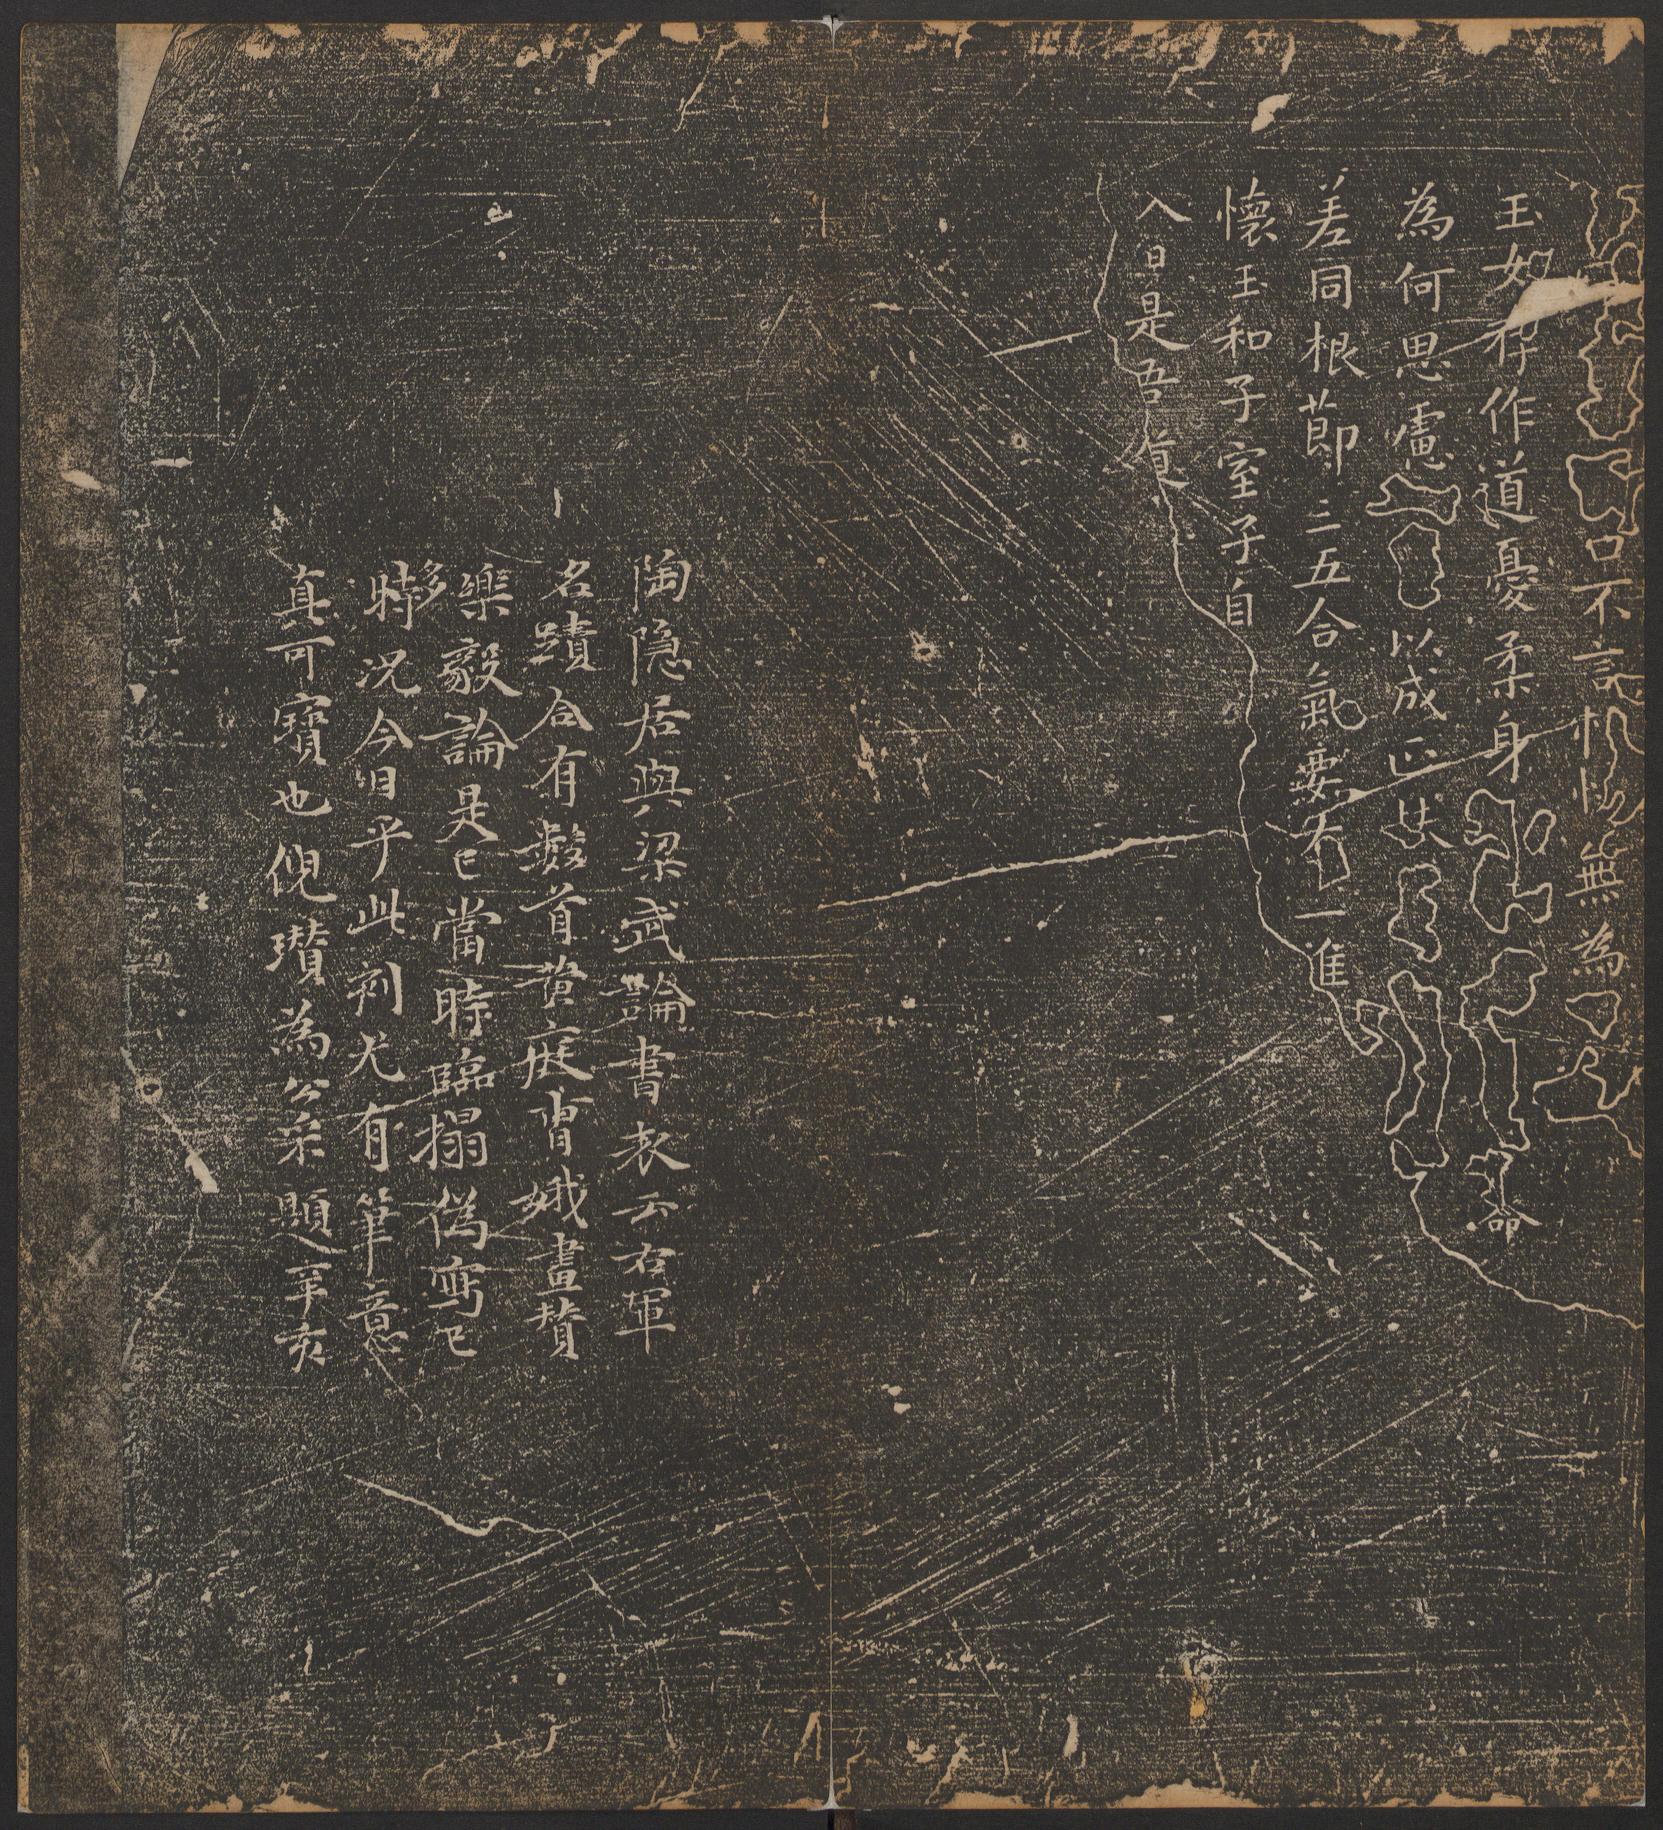 口不言恍惚無為
玉女存作道憂柔身命
為何思慮以成正女
差同根節三五合氣要一進
懷玉和子室子自
八曰是吾宜
陶隐居與梁武論書表云右軍
名蹟合有數首黄庭曺娥畫贊
樂毅論是已當時臨搨偽寫已
多時况今日乎此刻尤有筆意
真可寶也倪瓚為公采題辛亥